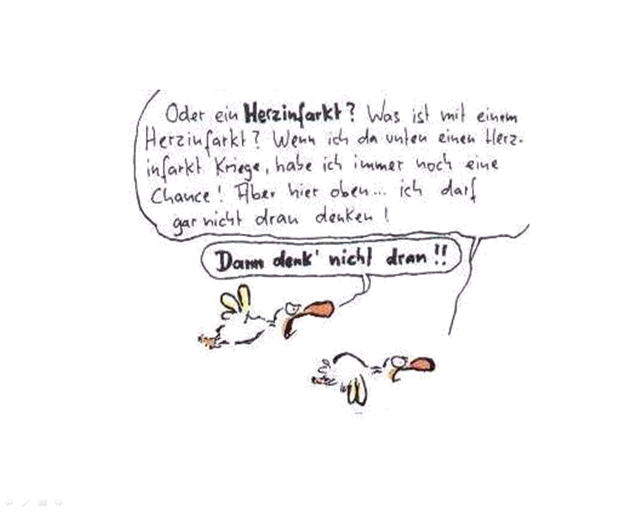 Oder ein Herzinfarkt? Was ist mit einem
Herzinfarkt? Wenn ich da unten einen Herz-
infarkt kriege, habe ich immer noch eine
Chance! Aber hier oben... ich darf
gar nicht dran denken!
Dann denk' nicht dran!!